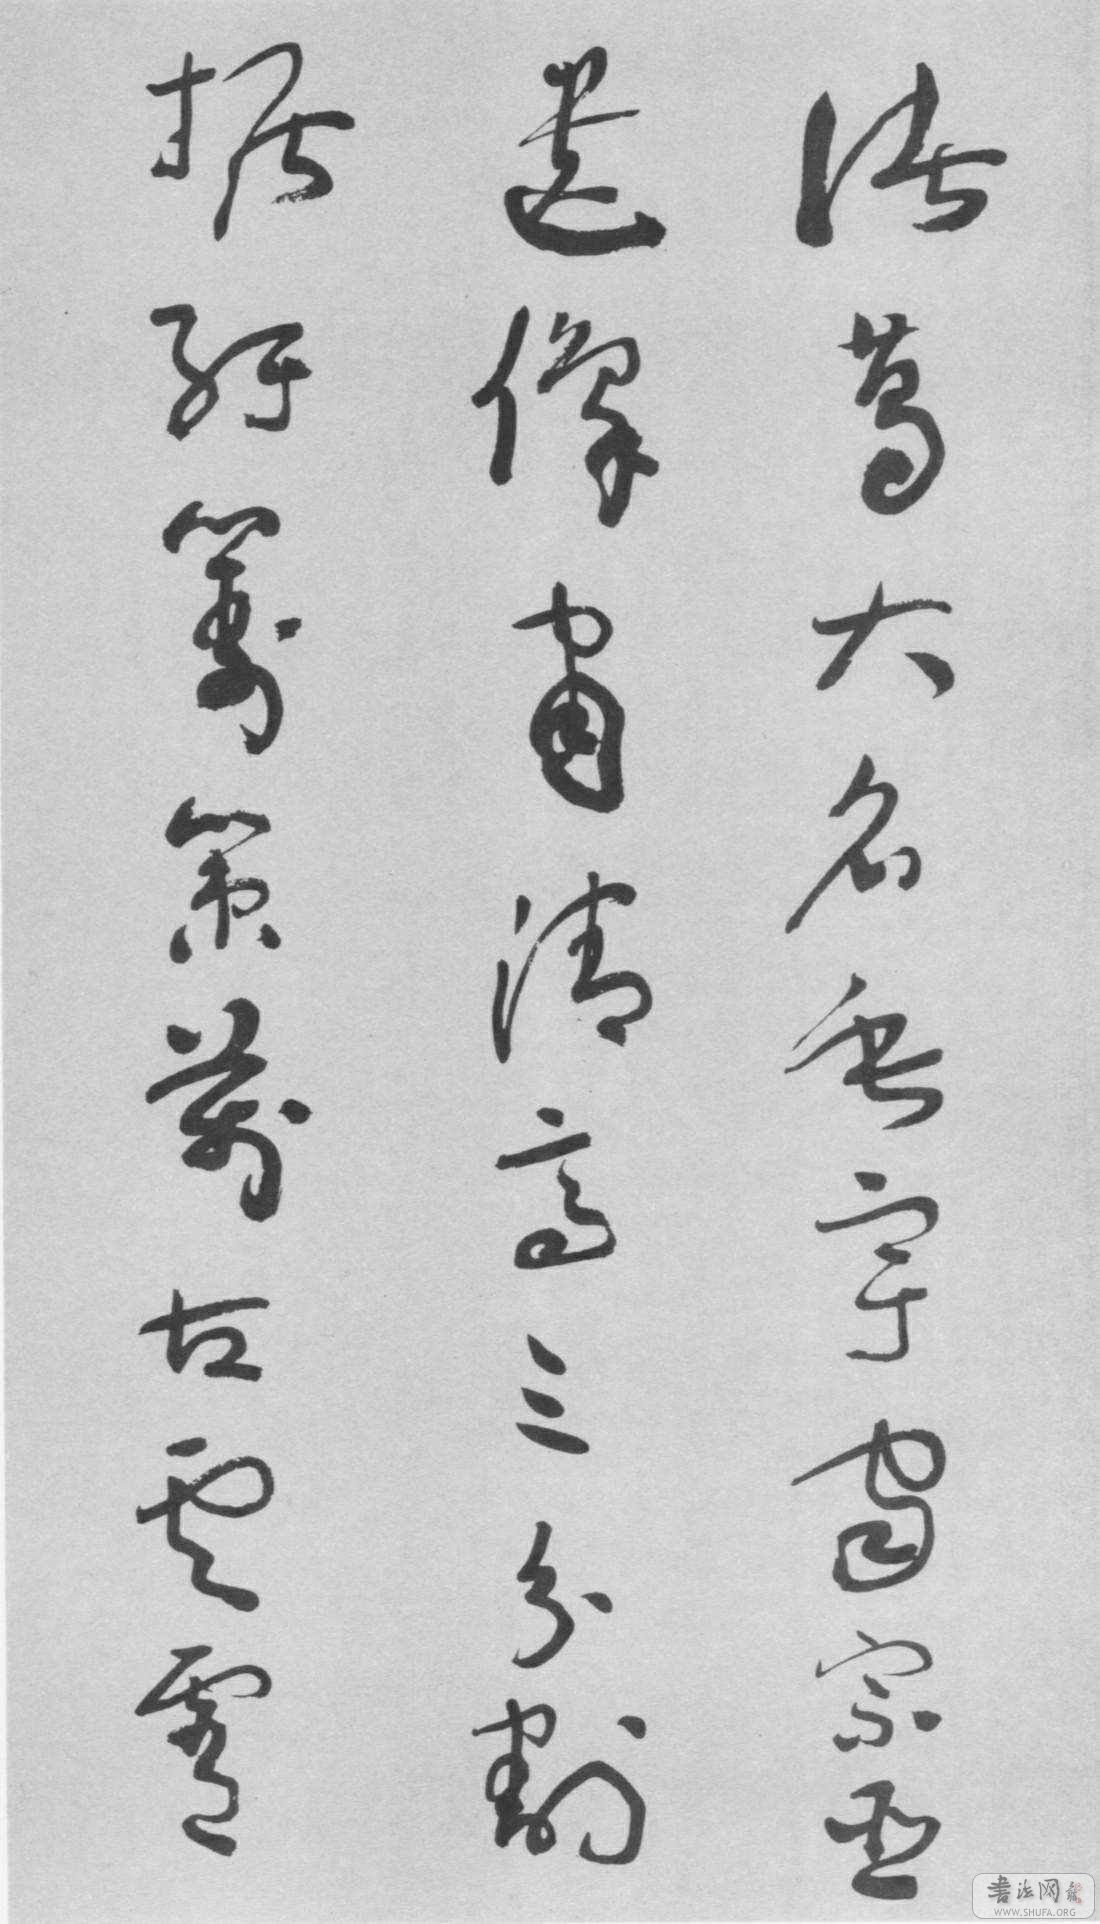 諸葛大名垂宇宙宗臣
遺像肅清高三分割
據紆籌策萬古雲霄
書法网
WWW.SHUFA.ORG